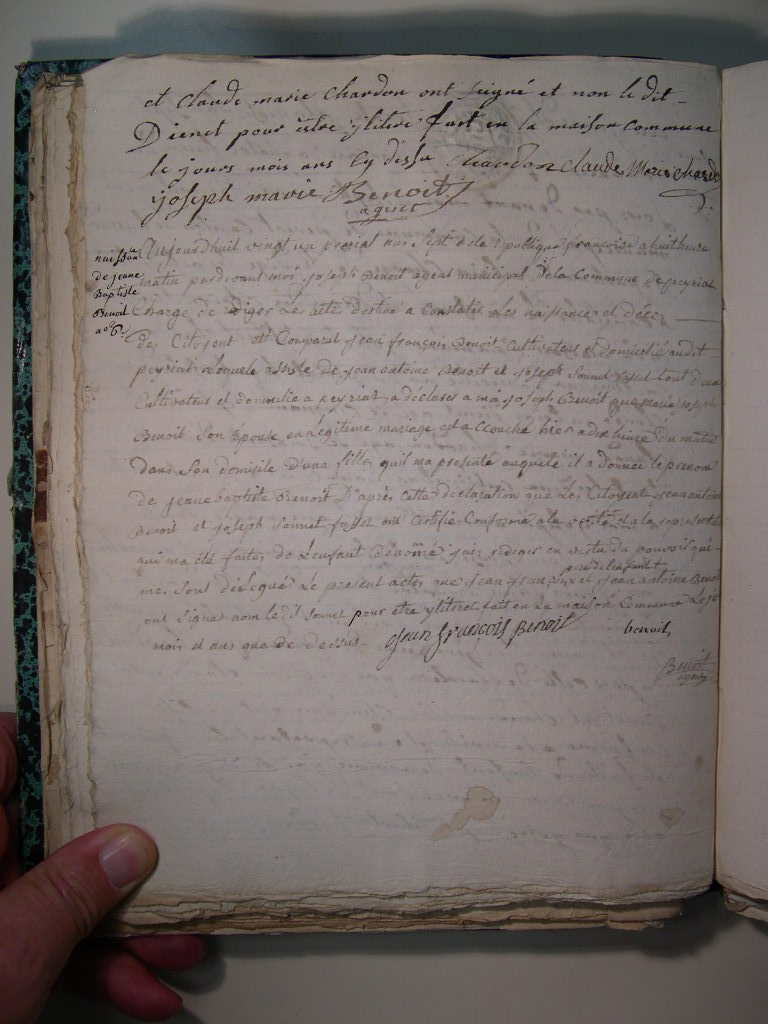 et Claude marie Chardon ont signé et non le dit
Dienet pour estre yliteré fait en la maison commune
le jours mois ans Cy dessu Chardon Claude Marie Chardo
joseph marie Benoit
agent
naissan
de jeane
Baptiste
Benoit
no 6
Aujourdhuil vingt un prerial ans sept de la republique françoise a huit heure
matin par devant moi joseph Benoit agent municipal de la Commune de peyriat
Charge de rediger les acte destue a Constater les naissance et déces
des Citoyent est Comparut jean françois Benoit Cultivateur et domicilié audit
peyriat Loquele assisté de jean antoine Benoit et joseph Sonnet tout deux
Cultivateur et domicilie a peyriat a déclarer a moi joseph Benoit que marie joseph
Benoit Son Epouse en légitime mariage est acCouché hier a dix heure du matin
dans Son domicile d'une fille quil ma presenté auquele il a donner le prenom
de jeane baptiste Benoit D'après Cette déclaration que Les Citoyent jean antoine
Benoit et joseph Sonnet ont Certifié Conforme a la verité et a la
qui ma été faites de L'enfant dénomé jais rediger en vertu du pouvoir qui
me. Sont délegué Le present actes que jean françois et jean antoine Benoit
pere de lenfant
ont Signe nom le dit Sonnet pour etre yliteret fait en La maison Commune Le
mois et ans que de dessus jean françois Benoit benoit
Benoit
agent